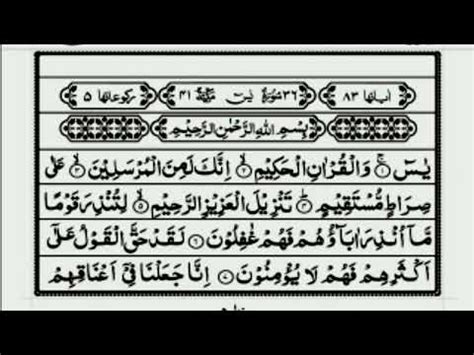 اٰیاتها ٨٣ ٣٦ سُوْرَةُ یٰسٓ مَكِّیَّةٌ ٤١ رکوعاتها ٥
بِسْمِ اللّٰهِ الرَّحْمٰنِ الرَّحِیْمِ
یٰسٓ ۚ وَالْقُرْاٰنِ الْحَكِیْمِ ۙ اِنَّكَ لَمِنَ الْمُرْسَلِیْنَ ۙ عَلٰی
صِرَاطٍ مُّسْتَقِیْمٍ ؕ تَنْزِیْلَ الْعَزِیْزِ الرَّحِیْمِ ۙ لِتُنْذِرَ قَوْمًا
مَّاۤ اُنْذِرَ اٰبَآؤُهُمْ فَهُمْ غٰفِلُوْنَ ۟ لَقَدْ حَقَّ الْقَوْلُ عَلٰۤی
اَكْثَرِهِمْ فَهُمْ لَا یُؤْمِنُوْنَ ۟ اِنَّا جَعَلْنَا فِیْۤ اَعْنَاقِهِمْ